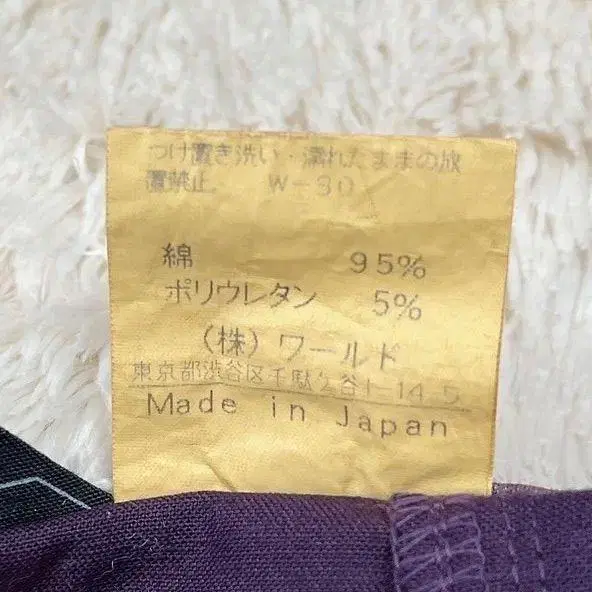 つけ置き洗い・濡れたままの放
置禁止。 W-30
綿 95%
ポリウレタン 5%
(株)ワールド
東京都渋谷区千駄ヶ谷1-14-5
Made in Japan